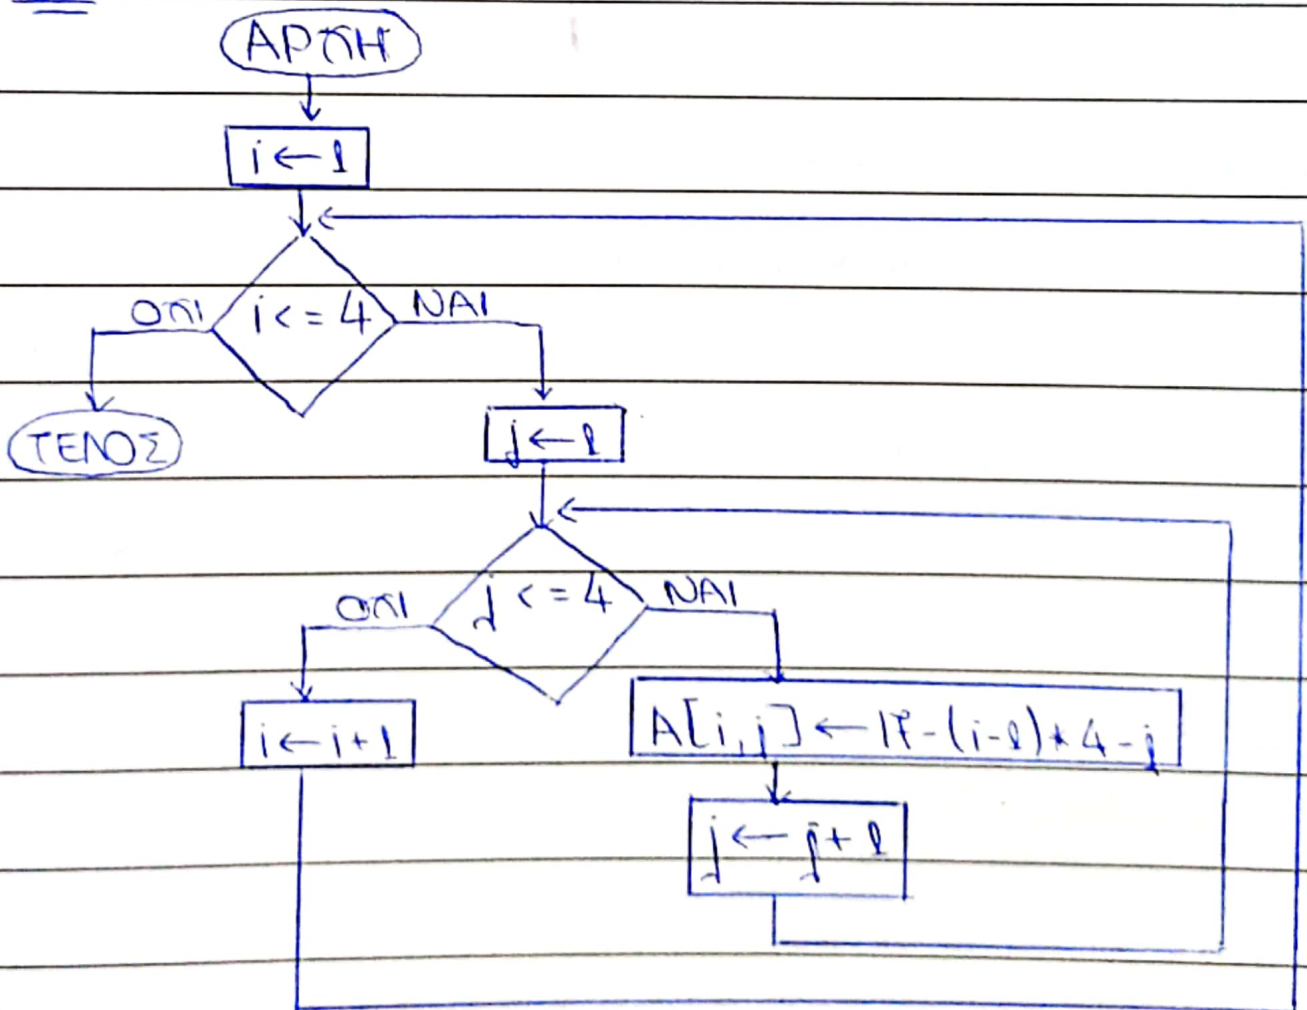 ΑΡΧΗ
i ← 1
i <= 4
ΟΧΙ
ΝΑΙ
ΤΕΛΟΣ
j ← 1
j <= 4
ΟΧΙ
ΝΑΙ
i ← i + 1
A[i, j] ← 17 - (i - 1) * 4 - j
j ← j + 1